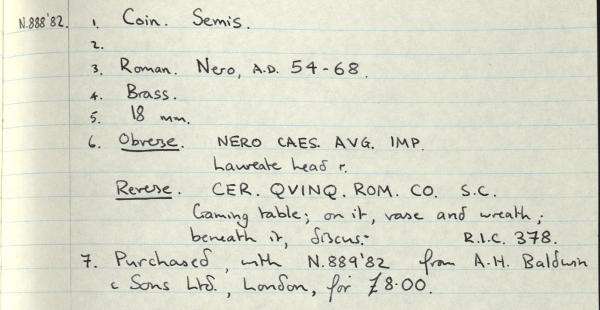 N.888'82. 1. Coin. Semis.
2.
3. Roman. Nero, A.D. 54-68.
4. Brass.
5. 18 mm.
6. Obverse. NERO CAES. AVG. IMP.
Laureate head r.
Reverse. CER. QVINQ. ROM. CO. S.C.
Gaming table; on it, vase and wreath;
beneath it, discus. R.I.C. 378.
7. Purchased, with N.889'82 from A.H. Baldwin
& Sons Ltd., London, for £8.00.